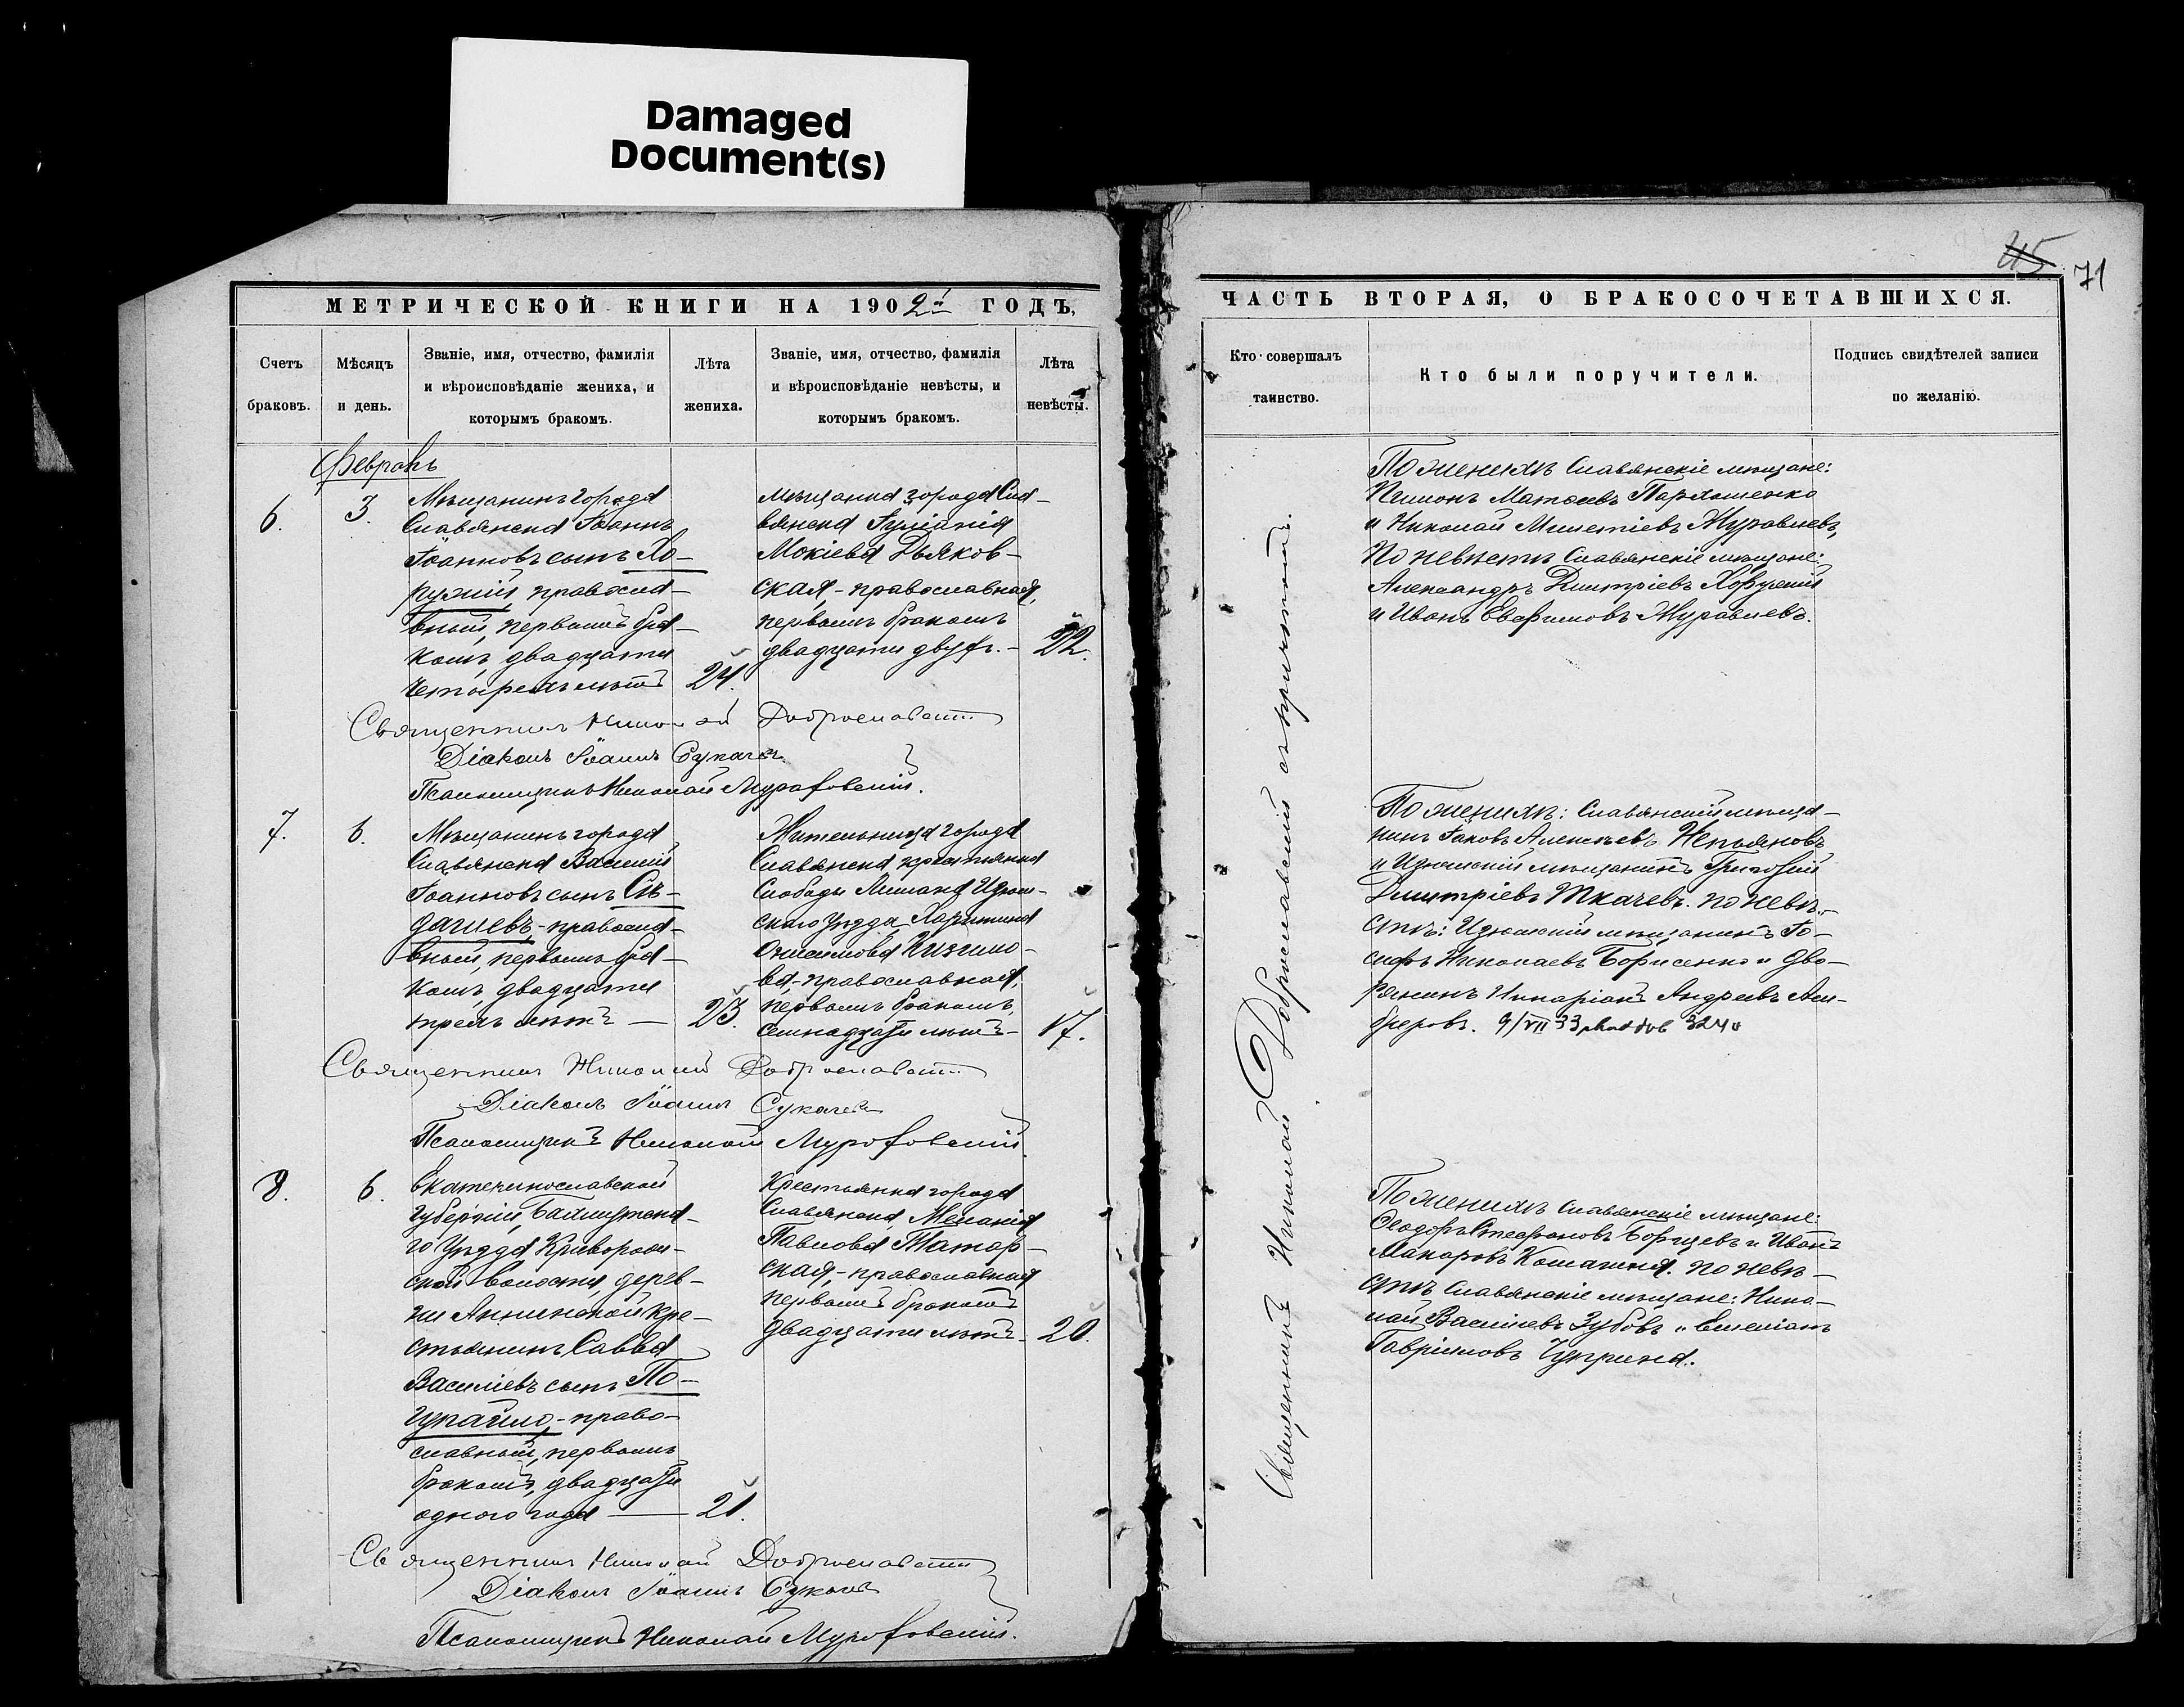 Damaged
Document(s)
45 71
МЕТРИЧЕСКОЙ КНИГИ НА 1902й ГОДЪ,
Счетъ
браковъ.
Мѣсяцъ
и день.
Званіе, имя, отчество, фамилія
и вѣроисповѣданіе жениха, и
которымъ бракомъ.
Лѣта
жениха.
Званіе, имя, отчество, фамилія
и вѣроисповѣданіе невѣсты, и
которымъ бракомъ.
Лѣта
невѣсты.
Февраль
6.
3.
Мѣщанинъ города
Славянска Іоаннъ
Іоанновъ сынъ Хо-
ружій, правосла-
вный, первымъ бра-
комъ, двадцати
четырехъ лѣтъ
24.
мѣщанка города Сла-
вянска Іуліанія
Мокіева Дьяков-
ская, - православная,
первымъ бракомъ
двадцати двухъ. -
22.
Священникъ Николай Доброславскій
Діаконъ Іоаннъ Сукачевъ
Псаломщикъ Николай Мураховскій.
7.
6.
Мѣщанинъ города
Славянска Василій
Іоанновъ сынъ Сѣ-
дашевъ, - правосла-
вный, первымъ бра-
комъ, двадцати
трехъ лѣтъ —
23.
Жительница города
Славянска крестьянка
Слободы Лимана Изюм-
скаго Уѣзда Харитина
Онисимова
ва, - православная,
первымъ бракомъ,
семнадцати лѣтъ -
17.
Священникъ Николай Доброславскій
Діаконъ Іоаннъ Сукачевъ
Псаломщикъ Николай Мураховскій.
8.
6.
Екатеринославской
губерніи, Бахмутска-
го Уѣзда Криворож-
ской волости, дерев-
ни Аннинской кре-
стьянинъ Савва
Василіевъ сынъ По-
гупайло, - право-
славный, первымъ
бракомъ, двадцати
одного года —
21.
Крестьянка города
Славянска, Меланія
Павлова Татар-
ская, - православная
первымъ бракомъ
двадцати лѣтъ -
20.
Священникъ Николай Доброславскій
Діаконъ Іоаннъ Сукачевъ
Псаломщикъ Николай Мураховскій.
ЧАСТЬ ВТОРАЯ, О БРАКОСОЧЕТАВШИХСЯ.
Кто совершалъ
таинство.
Кто были поручители.
Подпись свидѣтелей записи
по желанію.
Священникъ Николай Доброславскій
По женихѣ Славянскіе мѣщане:
Матѳеевъ Пархоменко
и Николай Мелетіевъ Журавлевъ,
По невѣстѣ Славянскіе мѣщане:
Александръ Димитріевъ Хоружій
и Иванъ Евфимовъ Журавлевъ.
По женихѣ: Славянскій мѣща-
нинъ Іаковъ Алексѣевъ
и Изюмскій мѣщанинъ Григорій
Димитріевъ Ткачевъ. по невѣ-
стѣ: Изюмскій мѣщанинъ Іо-
сифъ Николаевъ Борисенко и дво-
рянинъ Андреевъ
9/VII 33
По женихѣ Славянскіе мѣщане:
Ѳеодоръ Стефановъ Борщевъ и Иванъ
Макаровъ. по невѣ-
стѣ Славянскіе мѣщане: Нико-
лай Василіевъ Зубовъ и Емеліанъ
Гавріиловъ Чуприна.